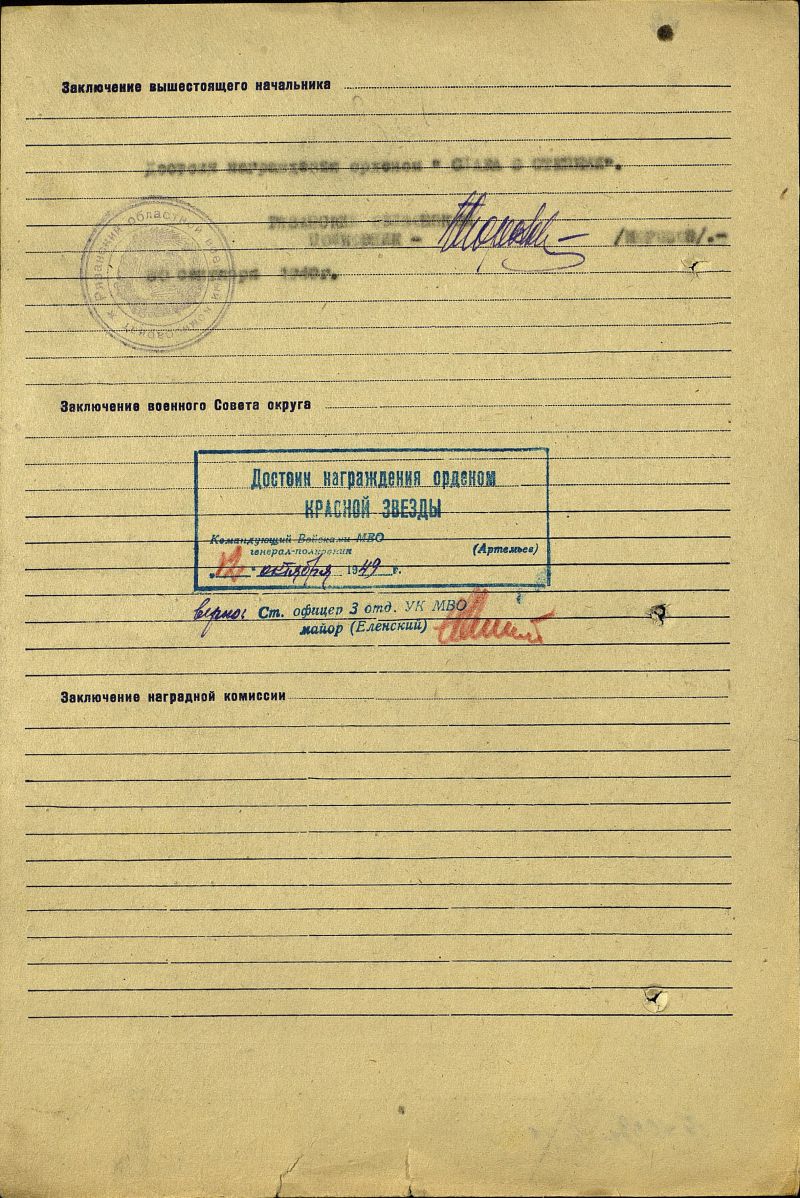 Заключение вышестоящего начальника
Достоин награждения орденом "СЛАВА 3 СТЕПЕНИ".
Полковник -
сентября
Рязанский областной военный комиссариат
Заключение военного Совета округа
Достоин награждения орденом
КРАСНОЙ ЗВЕЗДЫ
Командующий Войсками МВО
генерал-полковник (Артемьев)
"12" октября 1949 г.
верно: Ст. офицер 3 отд. УК МВО
майор (Еленский)
Заключение наградной комиссии